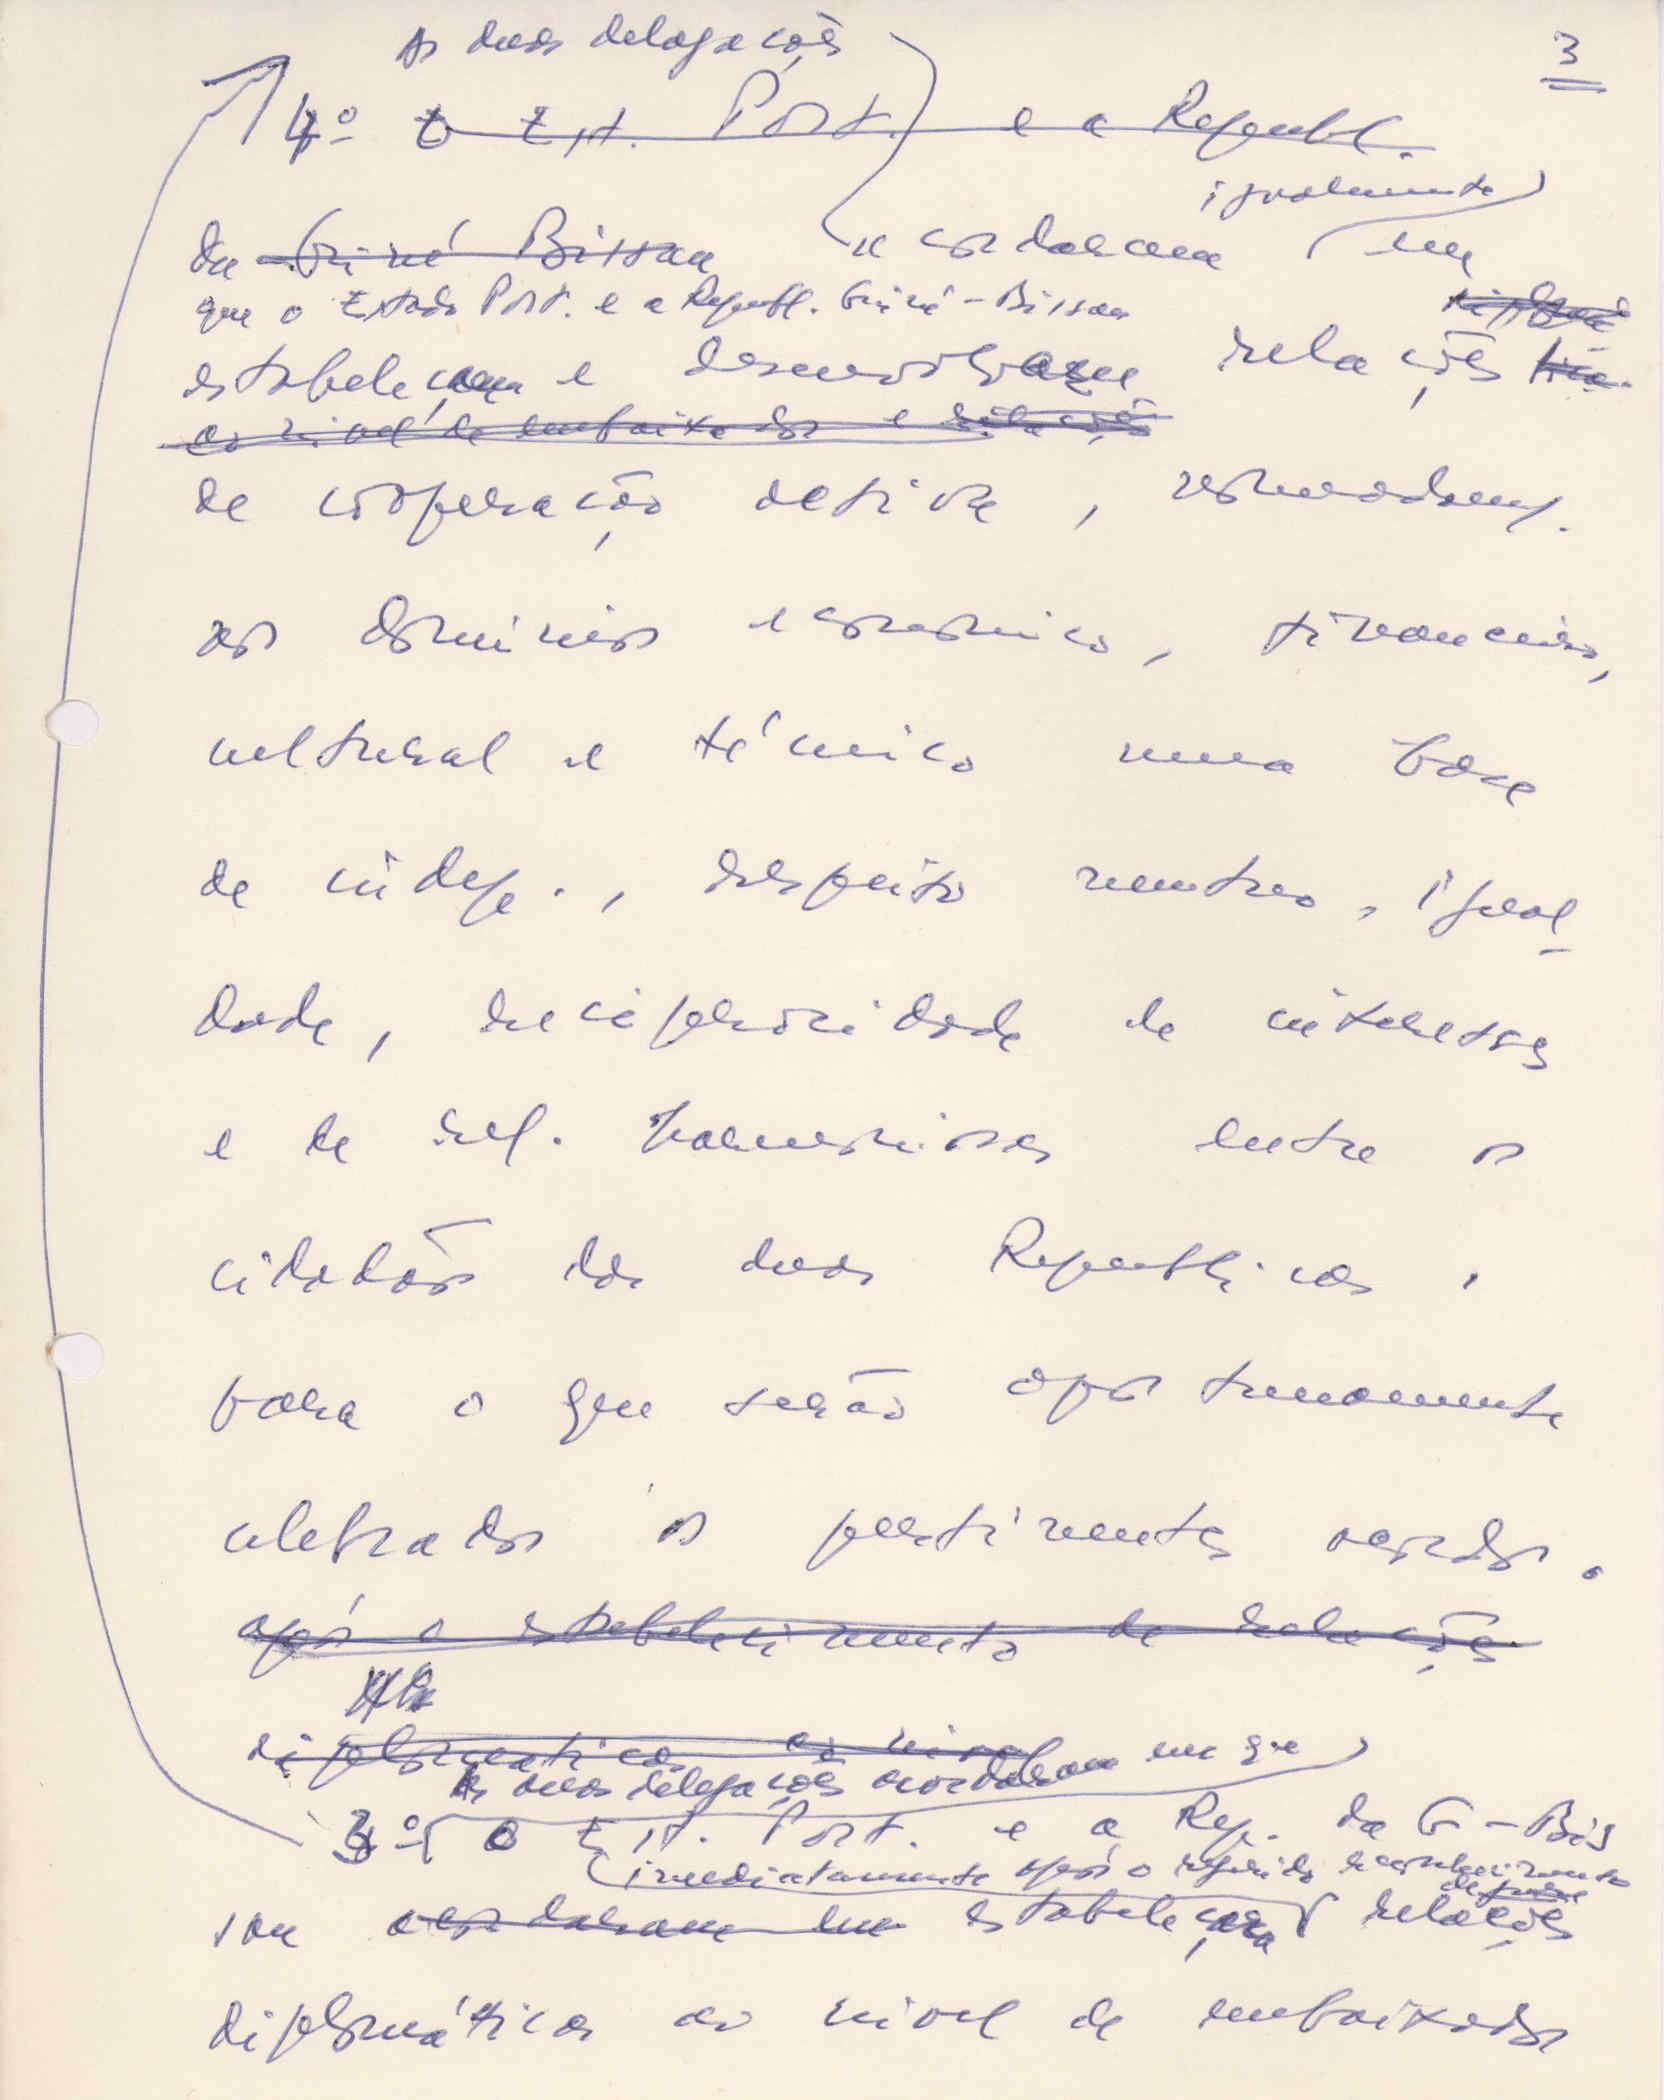 3
As duas delegações
4º O Est. Port. e a Republ.
igualmente
da Guiné Bissau acordaram em
que o Estado Port. e a Republ. Guiné-Bissau
estabeleçam e desenvolvam relações
ao nivel de embaixador e relações
de cooperação activa, nomeadam.
nos dominios economico, financeiro,
cultural e técnico numa base
de indep., respeito mutuo, igual-
dade, reciprocidade de interesses
e de rel. harmoniosas entre os
cidadãos das duas Republicas,
para o que serão oportunamente
celebrados os pertinentes acordos.
após o estabelecimento de relações
diplomaticas ao nivel
As duas delegações acordaram em que
3º O Est. Port. e a Rep. da G-Bis
imediatamente após o referido reconhecimento
sau acordaram em estabeleçam relações
diplomáticas ao nivel de embaixador